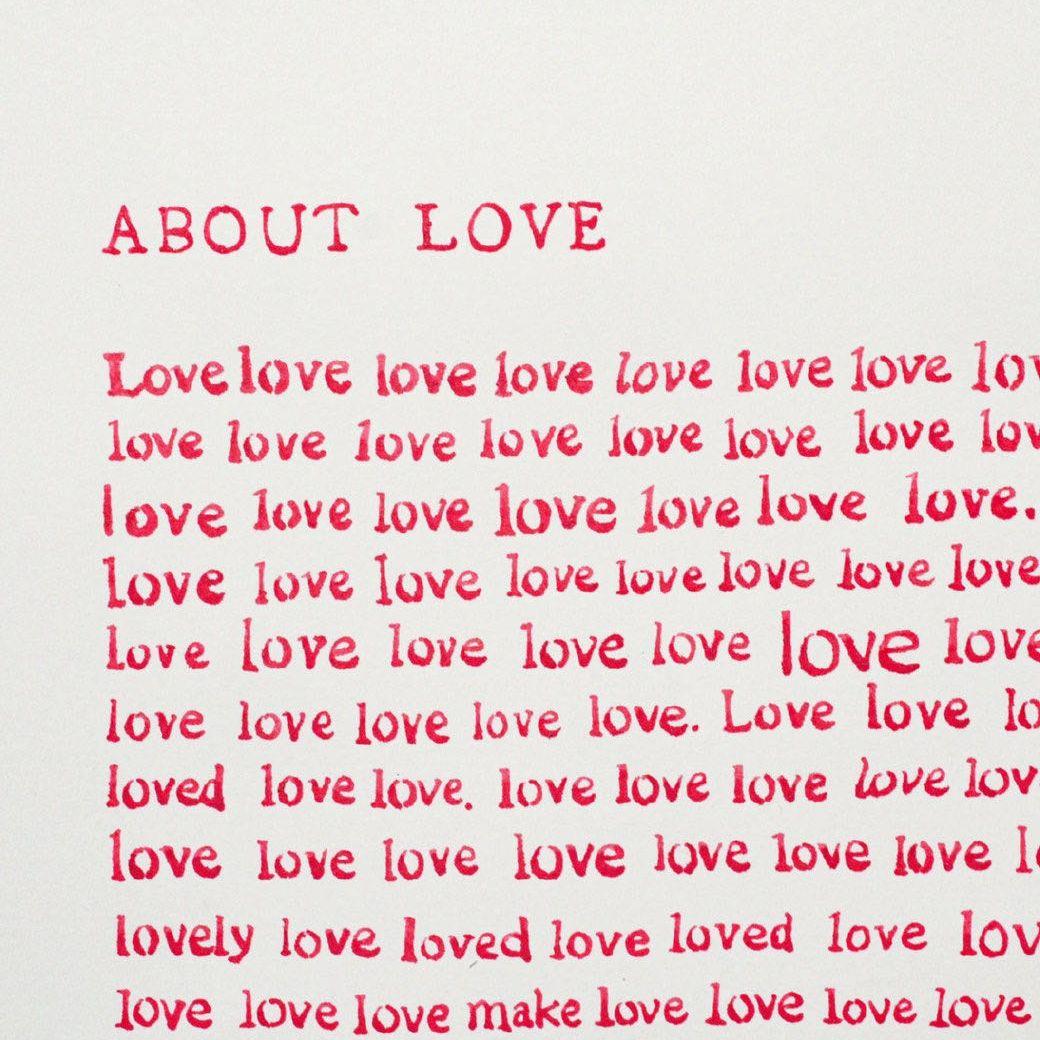 ABOUT LOVE
Love love love love love love love lov
love love love love love love love lov
love love love love love love love.
love love love love love love love love
love love love love love love love
love love love love love. Love love lo
loved love love. love love love love lov
love love love love love love love l
lovely love loved love loved love lov
love love love make love love love love